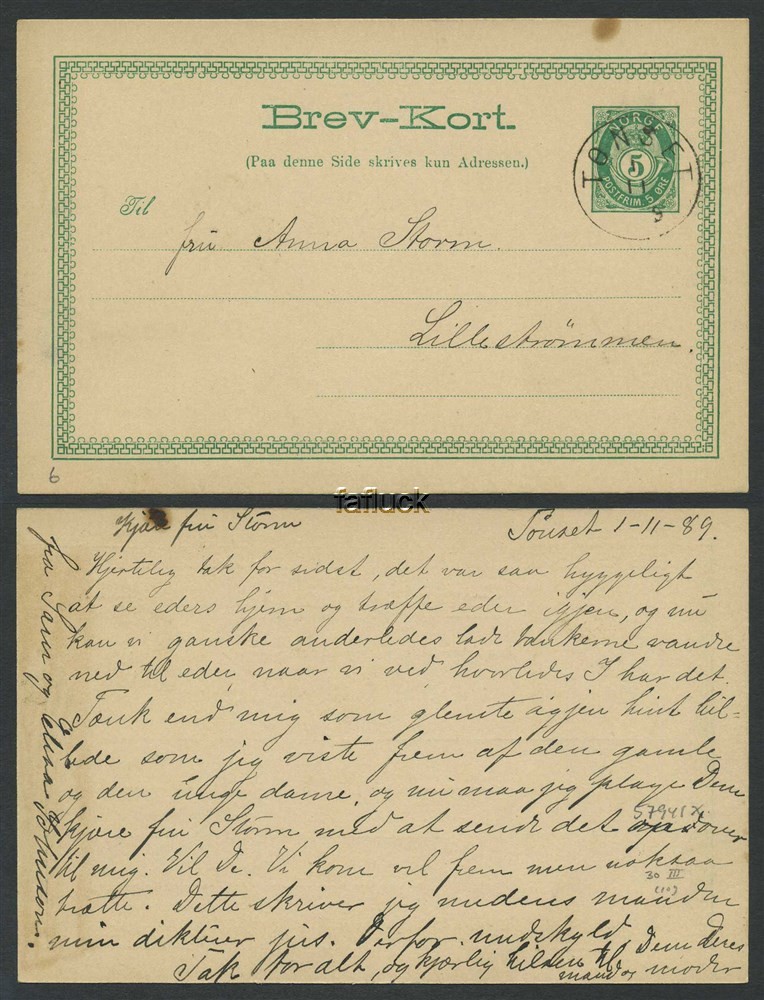 Brev-Kort.
(Paa denne Side skrives kun Adressen.)
NORGE
5
POSTFRIM. 5 ØRE
TØNSET
11
Til
fru Anna Storm.
Lillestrømmen.
6
fafluck
Kjære fru Storm
Tönset 1-11-89.
Hjertelig tak for sidst, det var saa hyggeligt
at se eders hjem og træffe eder igjen, og nu
kan vi ganske anderledes lade tankerne vandre
ned til eder, naar vi ved hvorledes I har det.
Tænk end mig som glemte igjen hint bil=
lede som jeg viste frem af den gamle
og den unge dame, og nu maa jeg plage Dem
kjære fru Storm med at sende det over
til mig. Vil De. Vi kom vel frem men noksaa
trætte. Dette skriver jeg medens manden
min dikterer jus. Derfor undskyld
Tak for alt, og kjærlig hilsen til Dem Deres
mand og moder
fra
57941 X
30 III
(10)